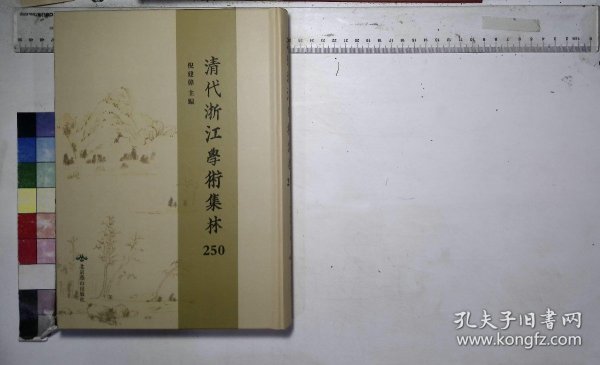 清代浙江學術集林
250
倪建偉 主編
北京燕山出版社
孔夫子旧书网
www.kongfz.com